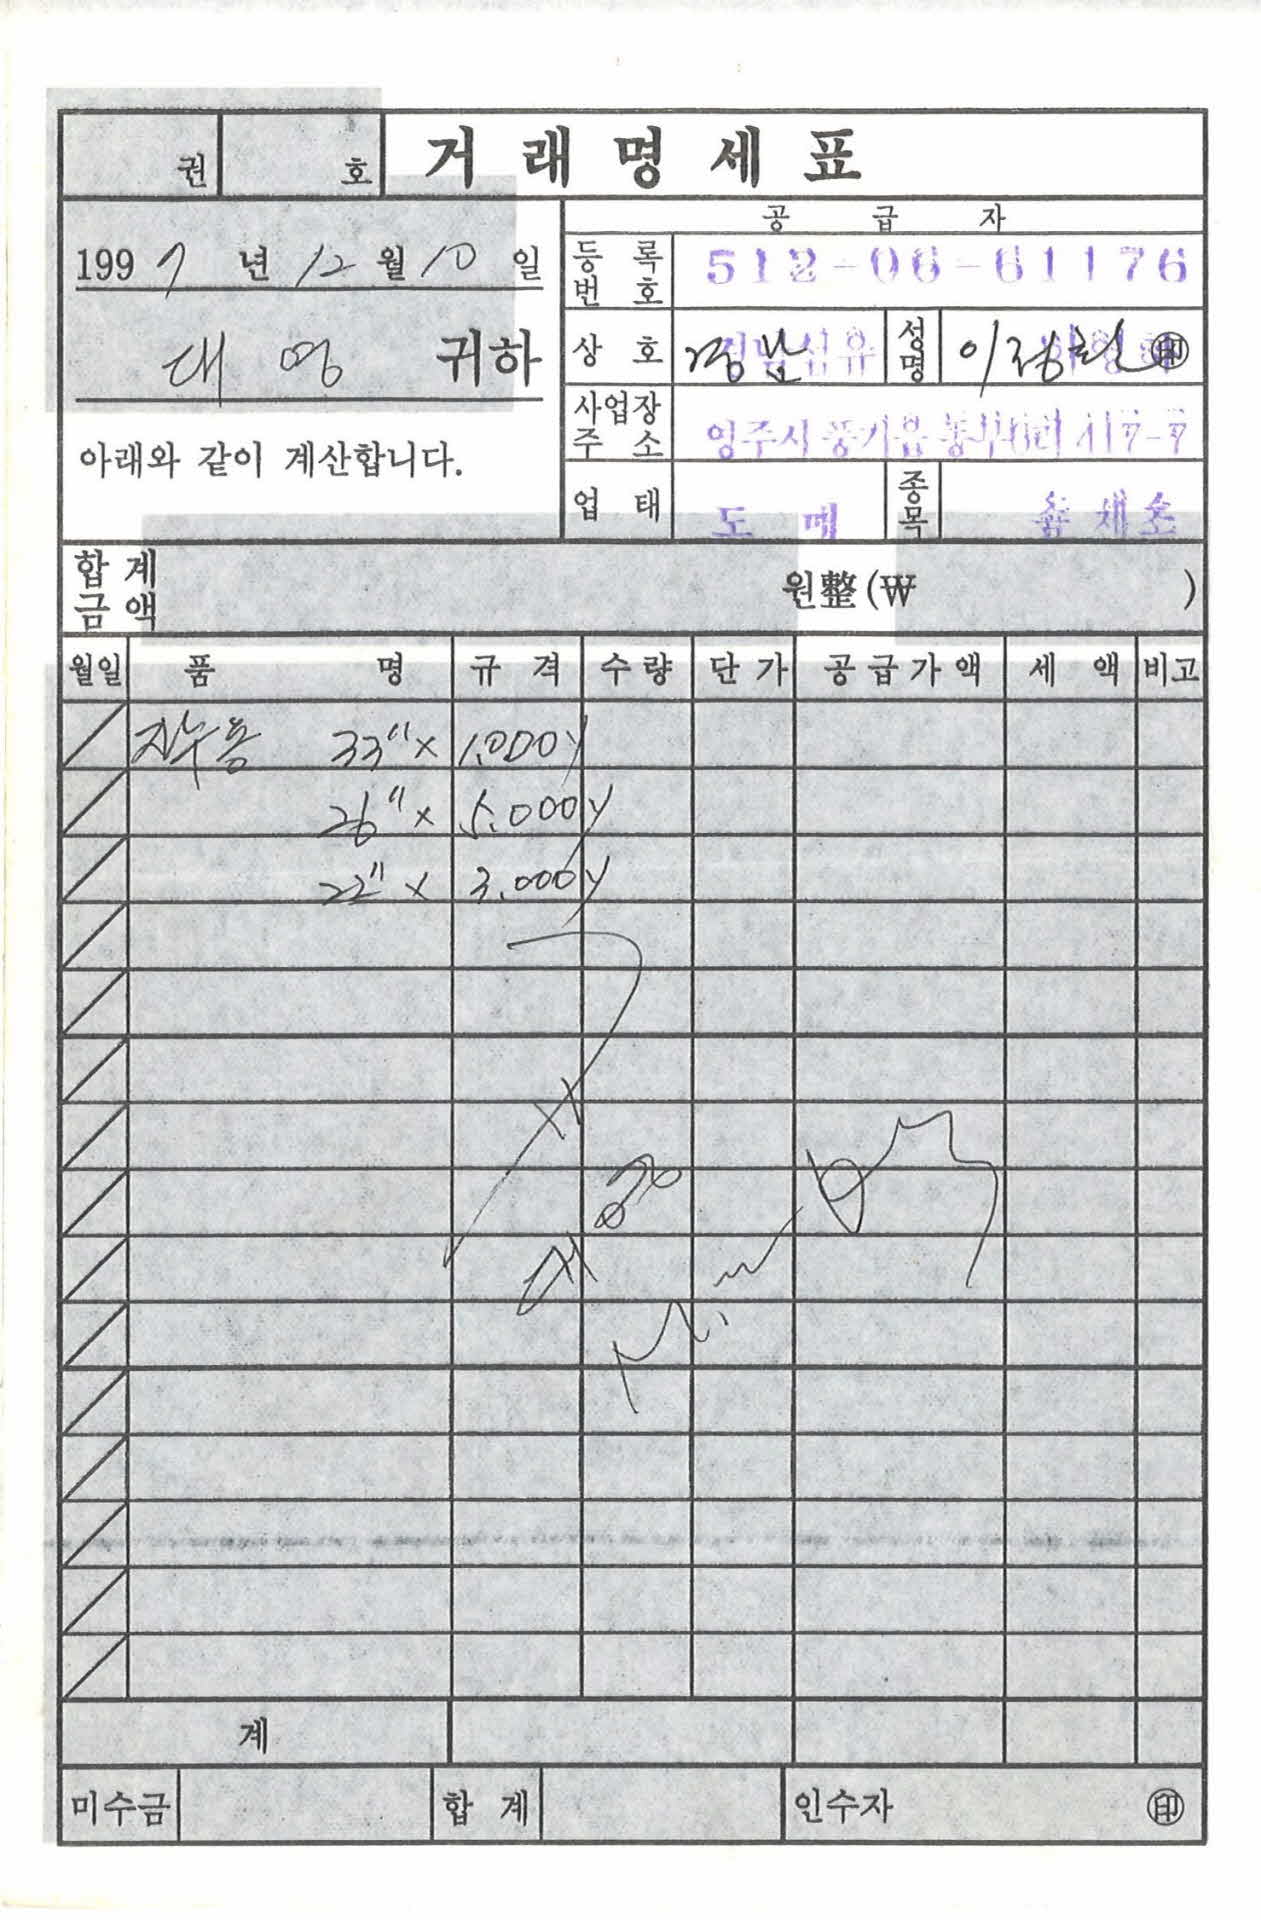 권 호 거래명세표
공급자
1997년 12월 10일
대영 귀하
아래와 같이 계산합니다.
등록번호 512-06-61176
상호 경남 성명 印
사업장주소 영주시 풍기읍 417-7
업태 도매 종목
합계금액 원整(₩ )
월일 품명 규격 수량 단가 공급가액 세액 비고
자수용 33"× 1.000y
26"× 5.000y
22"× 3.000y
대영
계
미수금 합계 인수자 印